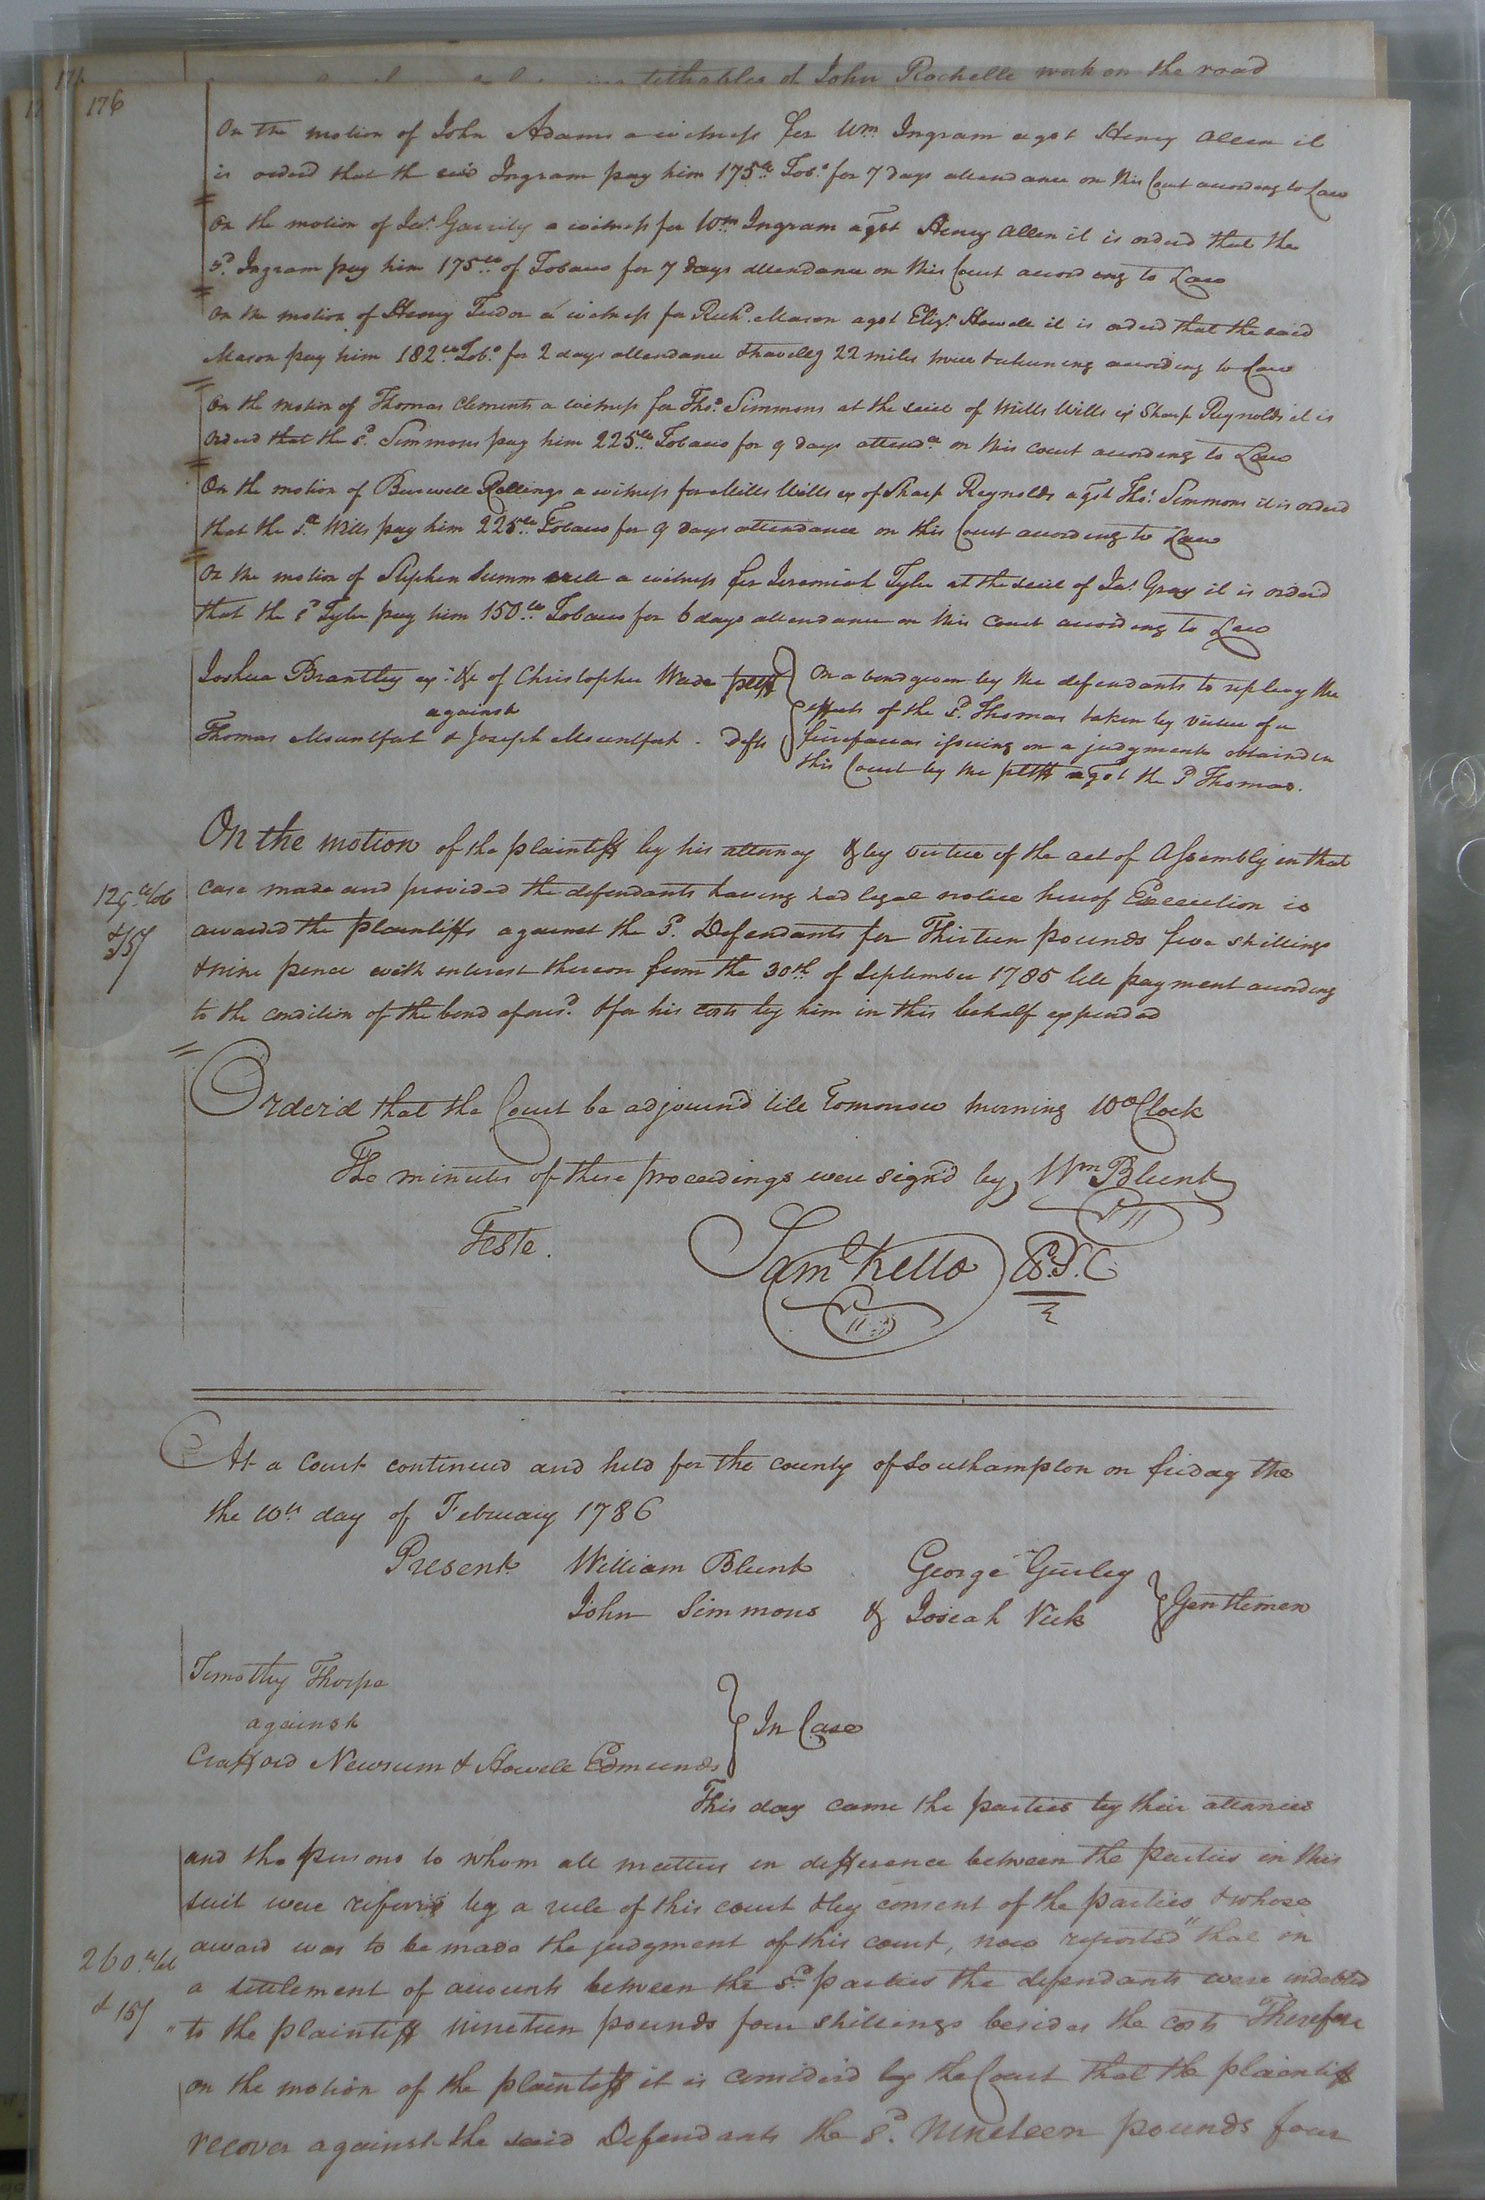 tithables of John Rochelle work on the road
176
On the motion of John Adams a witness for Wm Ingram agst Henry Allen it
is orderd that the said Ingram pay him 175lb Tobo for 7 days attendance on this Court according to Law
On the motion of Jas. Garrity a witness for Wm Ingram agst Henry Allen it is orderd that the
sd. Ingram pay him 175lb of Tobacco for 7 days attendance on this Court according to Law
On the motion of Henry Tudor a witness for Richd. Mason agst Eliza. Howell it is orderd that the said
Mason pay him 182lb Tobo for 2 days attendance & travellg 22 miles twice & returning according to Law
On the motion of Thomas Clements a witness for Thos. Simmons at the suit of Mills Wills ex Sharp Reynolds it is
Orderd that the sd. Simmons pay him 225lb Tobacco for 9 days attenda on this court according to Law
On the motion of Burwell Rollings a witness for Mills Wills ex of Sharp Reynolds agst Thos. Simmons it is orderd
that the sd. Wills pay him 225lb Tobacco for 9 days attendance on this Court according to Law
On the motion of Stephen Summerell a witness for Jeremiah Tyler at the suit of Jas. Gray it is orderd
that the sd Tyler pay him 150lb Tobacco for 6 days attendance on this Court according to Law
Joshua Brantley ex: &c of Christopher Wade pltff
against
Thomas Mountfort & Joseph Mountfort - Defts
On a bond given by the defendants to replevy the
effects of the sd. Thomas taken by virtue of a
fierifacias issuing on a judgment obtaind in
this Court by the pltff agst the sd Thomas.
On the motion of the plaintiff by his attorney & by virtue of the act of Assembly in that
case made and provided the defendants having had legal notice hereof Execution is
awarded the plaintiffs against the sd. Defendants for Thirteen pounds five shillings
& nine pence with interest thereon from the 30th of September 1785 till payment according
to the condition of the bond aforesd. & for his costs by him in this behalf expended
125 lb tob
& 15/
Order'd that the Court be adjourn'd till Tomorrow morning 10 oClock
The minutes of these proceedings were sign'd by Wm Blunt
Teste.
Saml Kello C.S.C
At a Court continued and held for the county of Southampton on friday the
the 10th day of February 1786
Present William Blunt George Gurley
John Simmons & Josiah Vick Gentlemen
Timothy Thorpe
against
Crafford Newsum & Howell Edmunds
In Case
This day came the parties by their attornies
and the persons to whom all matters in difference between the parties in this
suit were referr'd by a rule of this court & by consent of the parties & whose
award was to be made the judgment of this court, now reported "that on
a settlement of accounts between the sd. parties the defendants were indebted
" to the plaintiff nineteen pounds four shillings besides the costs Therefore
260 lb tob
& 15/
on the motion of the plaintiff it is considerd by the Court that the plaintiff
recover against the said Defendants the sd. nineteen pounds four